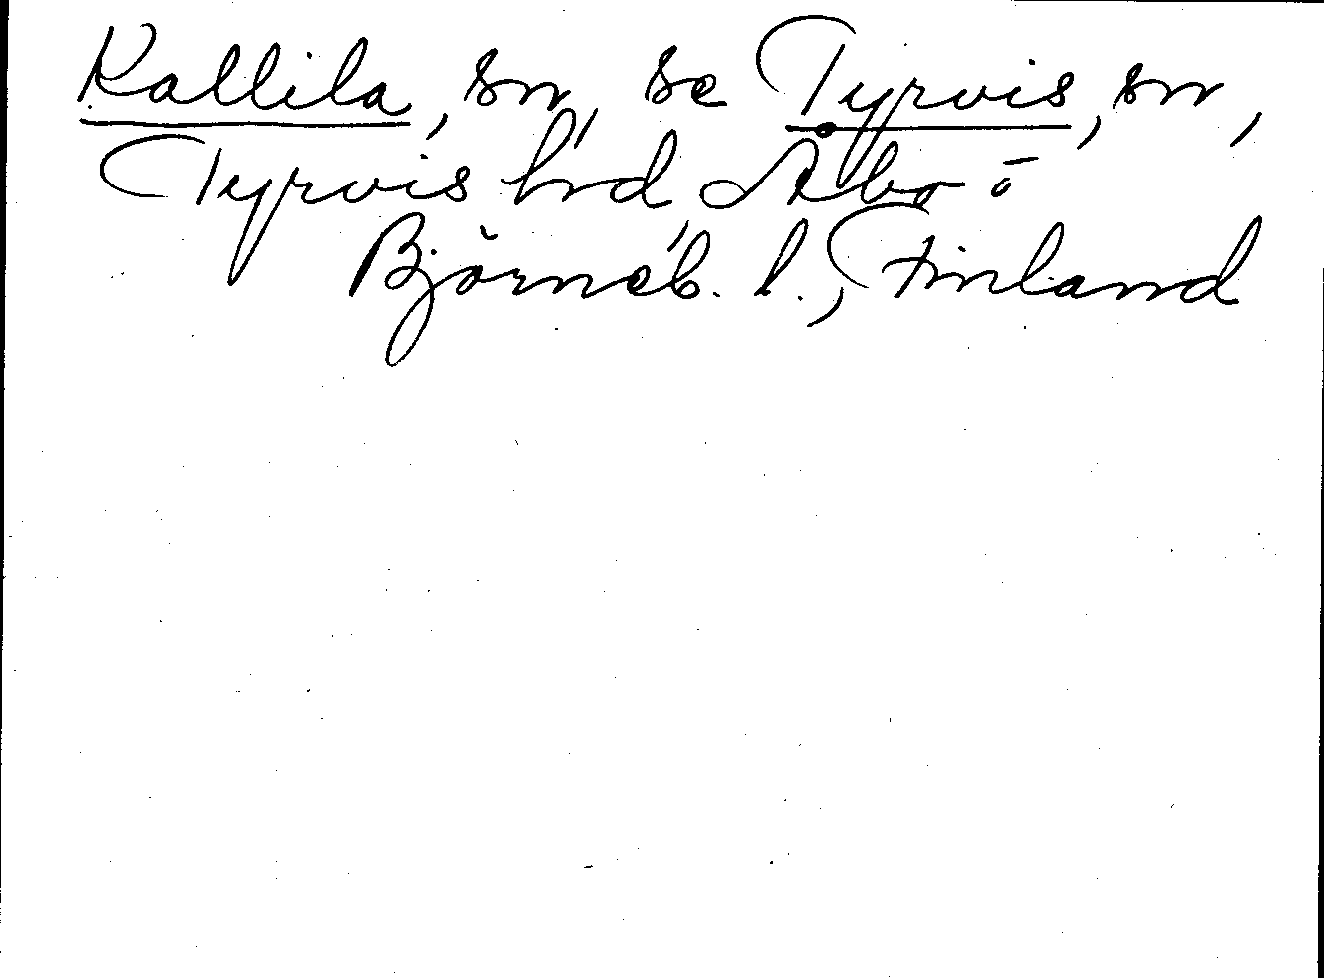 Kallila, sn, se Tyrvis, sn,
Tyrvis hd, Åbo o
Björneb. l., Finland